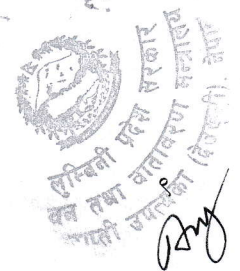 लुम्बिनी प्रदेश सरकार
वन तथा वातावरण मन्त्रालय
राप्ती उपत्यका (देउखुरी) नेपाल